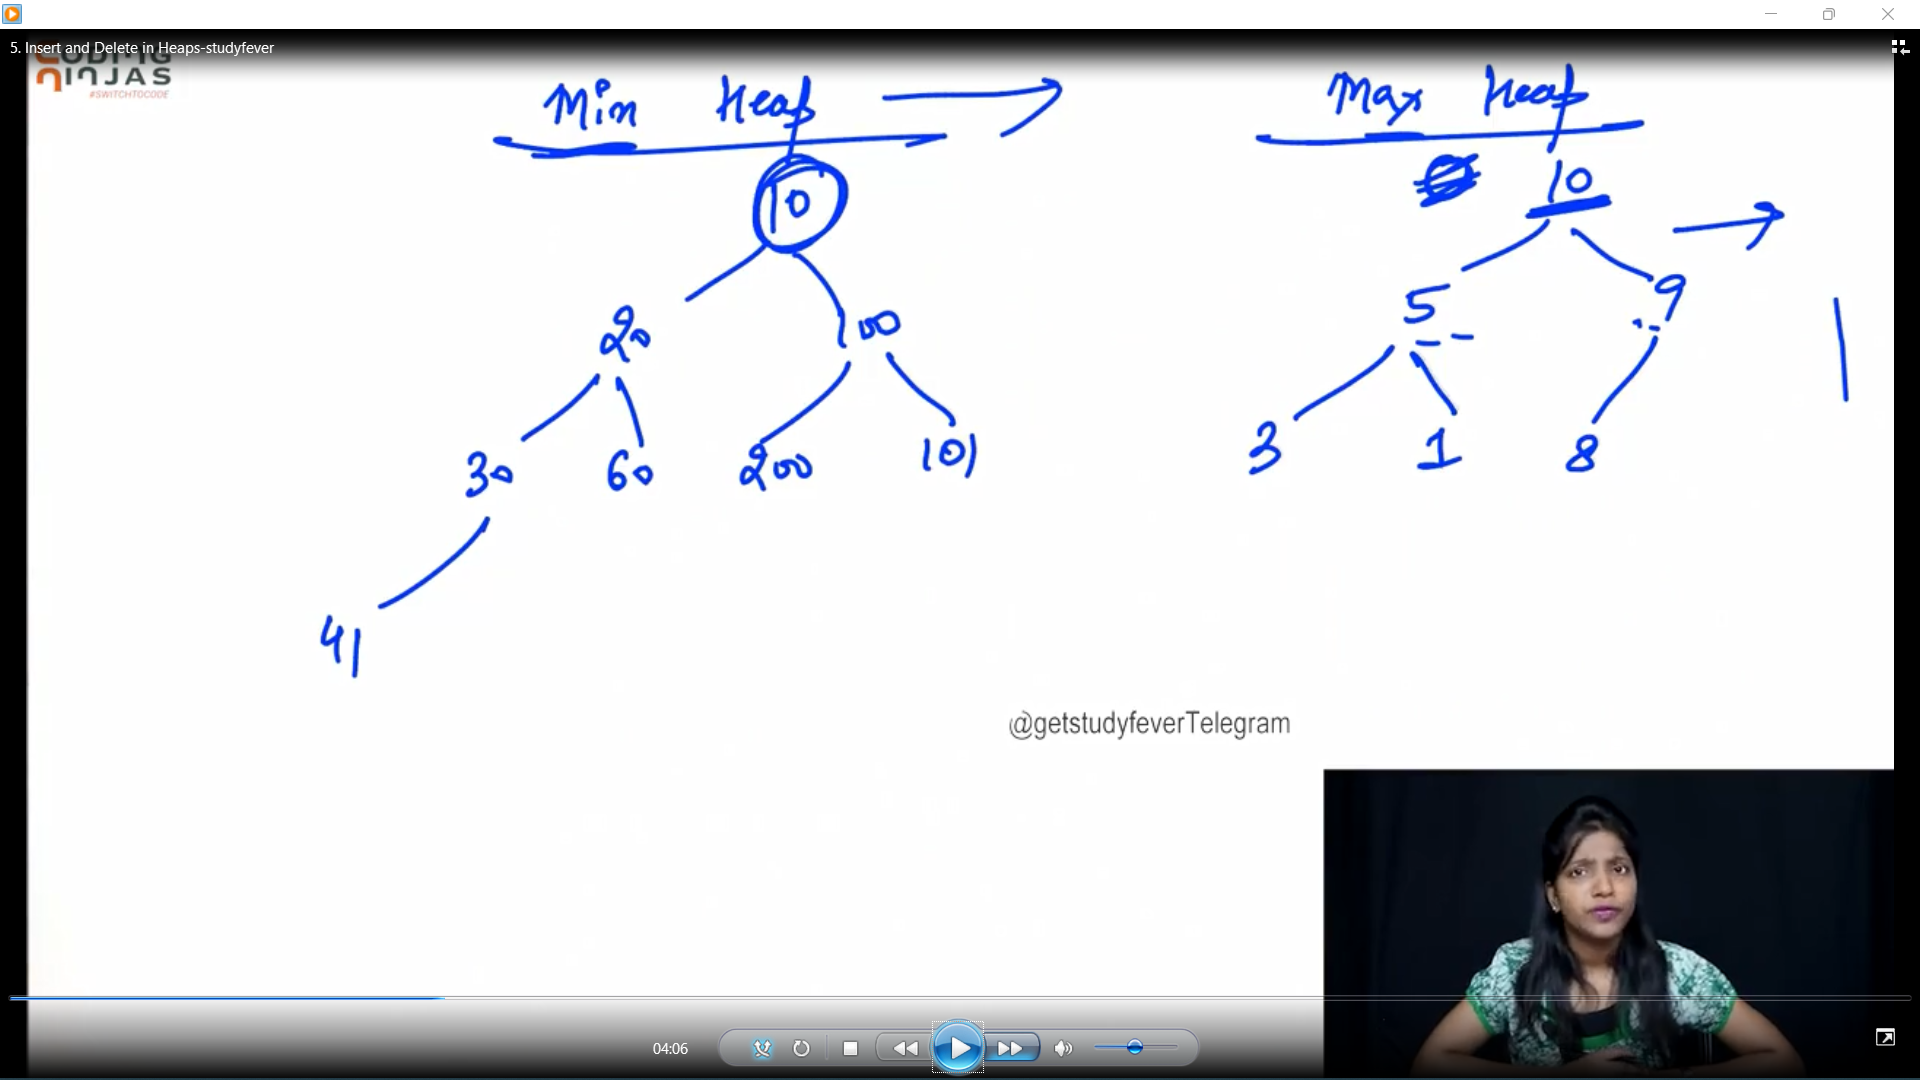 5. Insert and Delete in Heaps-studyfever
CODING
NINJAS
#SWITCHTOCODE
Min Heap
Max Heap
10
10
20 100
5 9
30 60 200 101
3 1 8
41
@getstudyfeverTelegram
04:06